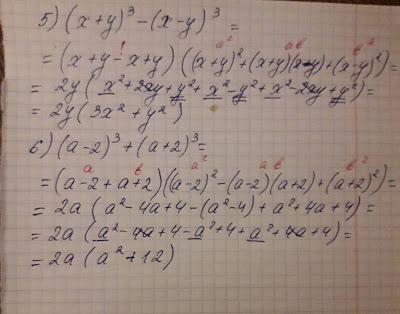 5) (x+y)³-(x-y)³=
=(x+y-x+y)((x+y)²+(x+y)(x-y)+(x-y)²)=
a² ав в²
=2y(x²+2xy+y²+x²-y²+x²-2xy+y²)=
=2y(3x²+y²)
6) (a-2)³+(a+2)³=
а в а² ав в²
=(a-2+a+2)((a-2)²-(a-2)(a+2)+(a+2)²)=
=2a(a²-4a+4-(a²-4)+a²+4a+4)=
=2a(a²-4a+4-a²+4+a²+4a+4)=
=2a(a²+12)